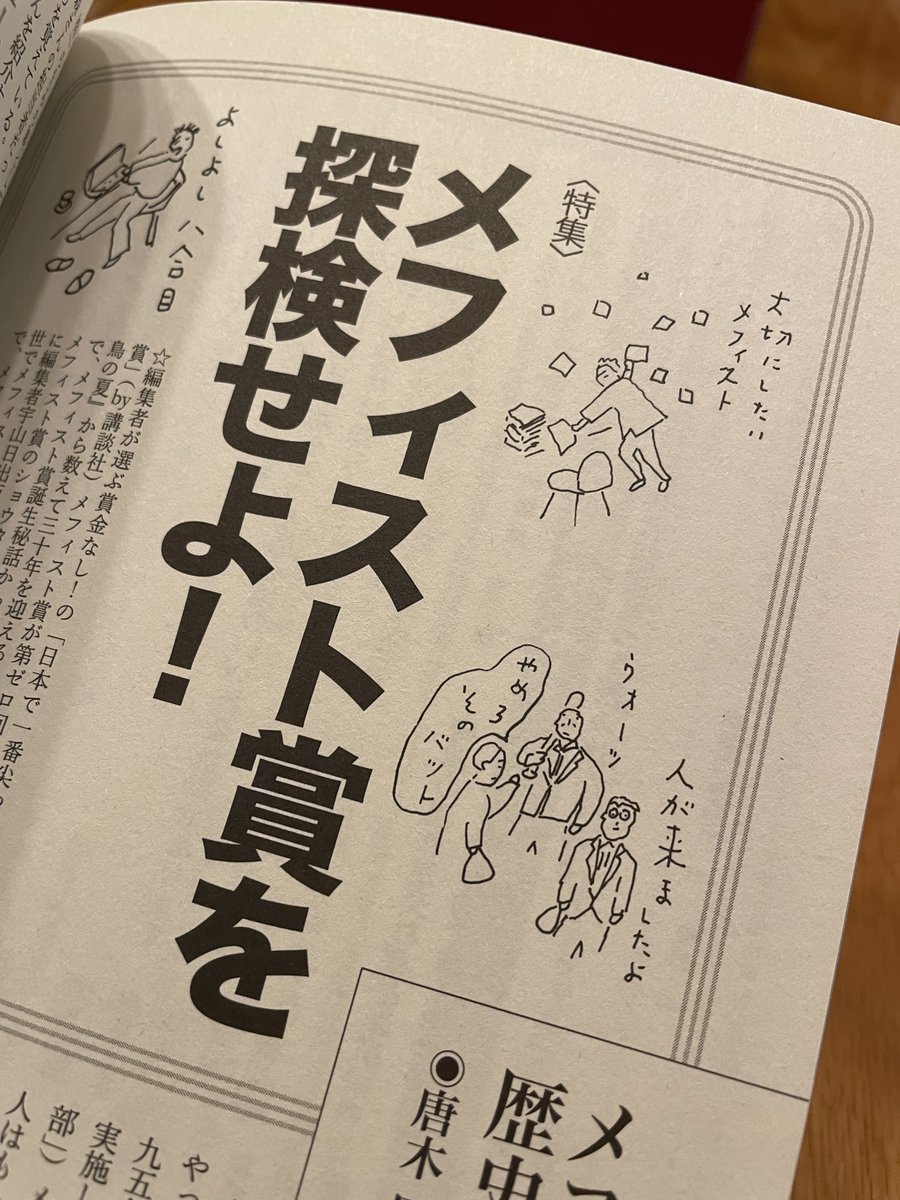 〈特集〉
メフィスト賞を
探検せよ！
大切にしたい
メフィスト
人が来ましたよ
ウオーッ
やめろ
そのバット
よしよし 八合目
☆編集者が選ぶ賞金なし！の「日本で一番尖
賞」（by講談社）メフィスト賞が第ゼロ回
鳥の夏』から数えて三十年を迎える
で、メフィスト賞誕生秘話か
に編集者宇山日出臣のショウタ
世で、メフィス
メフ
歴史
◉唐木
やっ
九五
実施し
部」）
人はも